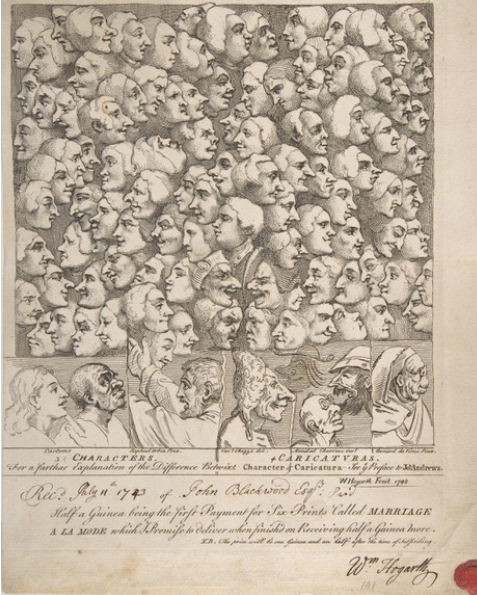 Cartons Raphael Urbin Pinx. Cav. Ghezzi del. Annibal Carracci Leonard da Vinci Pinx.
CHARACTERS. CARICATURAS.
For a farthar Explanation of the Difference Betwixt Character & Caricatura See yᵉ Preface to Joh. Andrews.
W Hogarth Fecit 1743
Recᵈ July 11ᵗʰ 1743 of John Blackwood Esqʳ
Half a Guinea being the first Payment for Six Prints Called MARRIAGE
A LA MODE which I Promise to deliver when finish'd on Receiving half a Guinea more.
N.B. The price will be one Guinea and an half after the time of Subscribing.
Wᵐ Hogarth